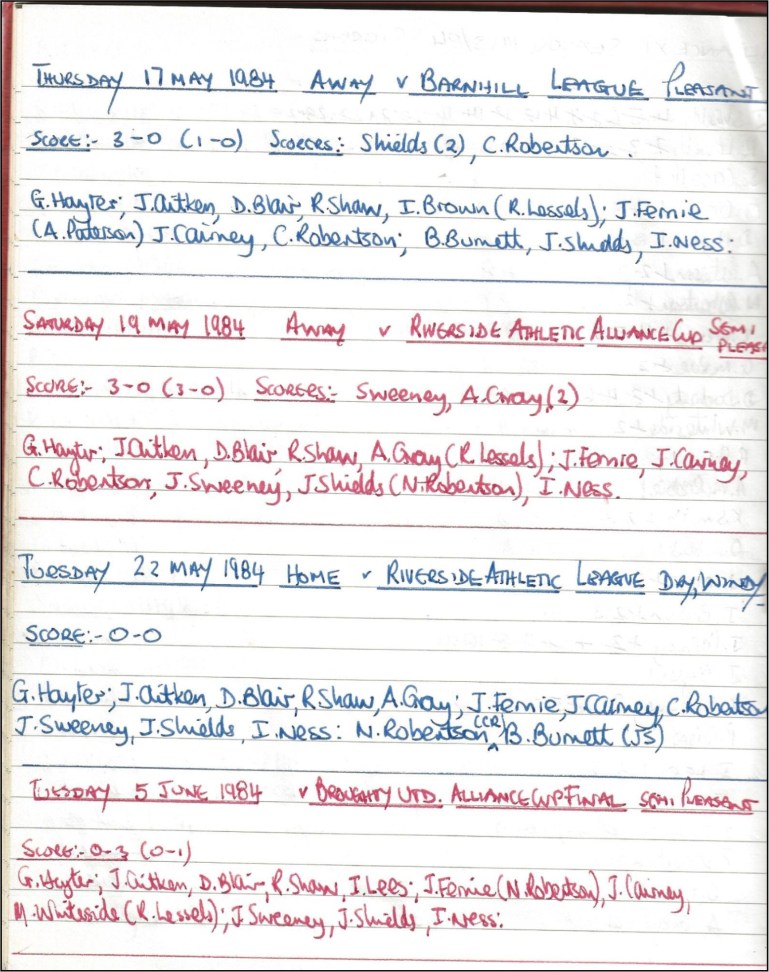 THURSDAY 17 MAY 1984 AWAY v BARNHILL LEAGUE PLEASANT
SCORE:- 3-0 (1-0) SCORERS: Shields (2), C.Robertson.
G.Hayter; J.Aitken, D.Blair, R.Shaw, I.Brown (R.Lessels); J.Fernie
(A.Paterson) J.Cairney, C.Robertson; B.Burnett, J.Shields, I.Ness:
SATURDAY 19 MAY 1984 AWAY v RIVERSIDE ATHLETIC ALLIANCE CUP SEMI
PLEASA
SCORE:- 3-0 (3-0) SCORERS:- Sweeney, A.Gray (2)
G.Hayter; J.Aitken, D.Blair, R.Shaw, A.Gray (R.Lessels); J.Fernie, J.Cairney,
C.Robertson, J.Sweeney, J.Shields (N.Robertson), I.Ness.
TUESDAY 22 MAY 1984 HOME v RIVERSIDE ATHLETIC LEAGUE DRY, WINDY
SCORE:- 0-0
G.Hayter; J.Aitken, D.Blair, R.Shaw, A.Gray; J.Fernie, J.Cairney, C.Robertso
J.Sweeney, J.Shields, I.Ness: N.Robertson (CR), B.Burnett (JS)
TUESDAY 5 JUNE 1984 v BROUGHTY UTD. ALLIANCE CUP FINAL SEMI PLEASANT
SCORE:- 0-3 (0-1)
G.Hayter; J.Aitken, D.Blair, R.Shaw, I.Lees; J.Fernie (N.Robertson), J.Cairney,
M.Whiteside (R.Lessels); J.Sweeney, J.Shields, I.Ness: